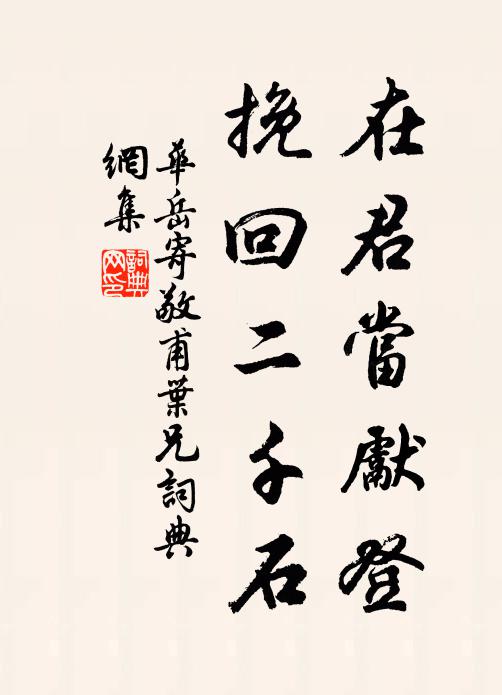 在君當獻登
挽回二千石
華岳寄敬甫葉兄詞典
網集
詞典
网印